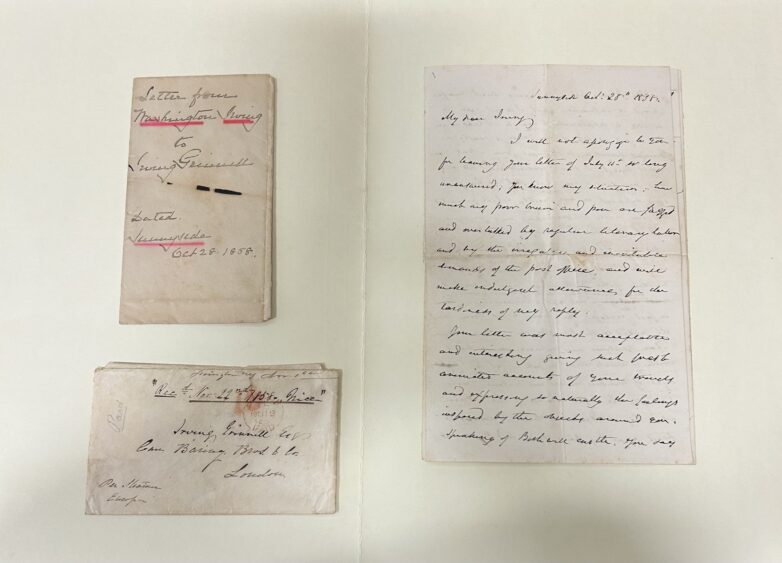 Letter from
Washington Irving
to
Irving Grinnell
Dated.
Sunnyside
Oct 28. 1858.
"Recd. Nov 22nd 1858, Nice"
Paid
Irving Grinnell Esqr
Care Baring Bros & Co
London
Per Steamer
Europa
Sunnyside Oct. 28th 1858.
My dear Irving,
I will not apologize to you
for leaving your letter of July 11th so long
unanswered. You know my situation; how
much my poor brain and pen are fagged
and overtasked by regular literary labor
and by the irregular and inevitable
demands of the post office, and will
make indulgent allowance for the
tardiness of my reply.
Your letter was most acceptable
and interesting giving such fresh
animated accounts of your travels
and expressing so naturally the feelings
inspired by the objects around you.
Speaking of castle, you say